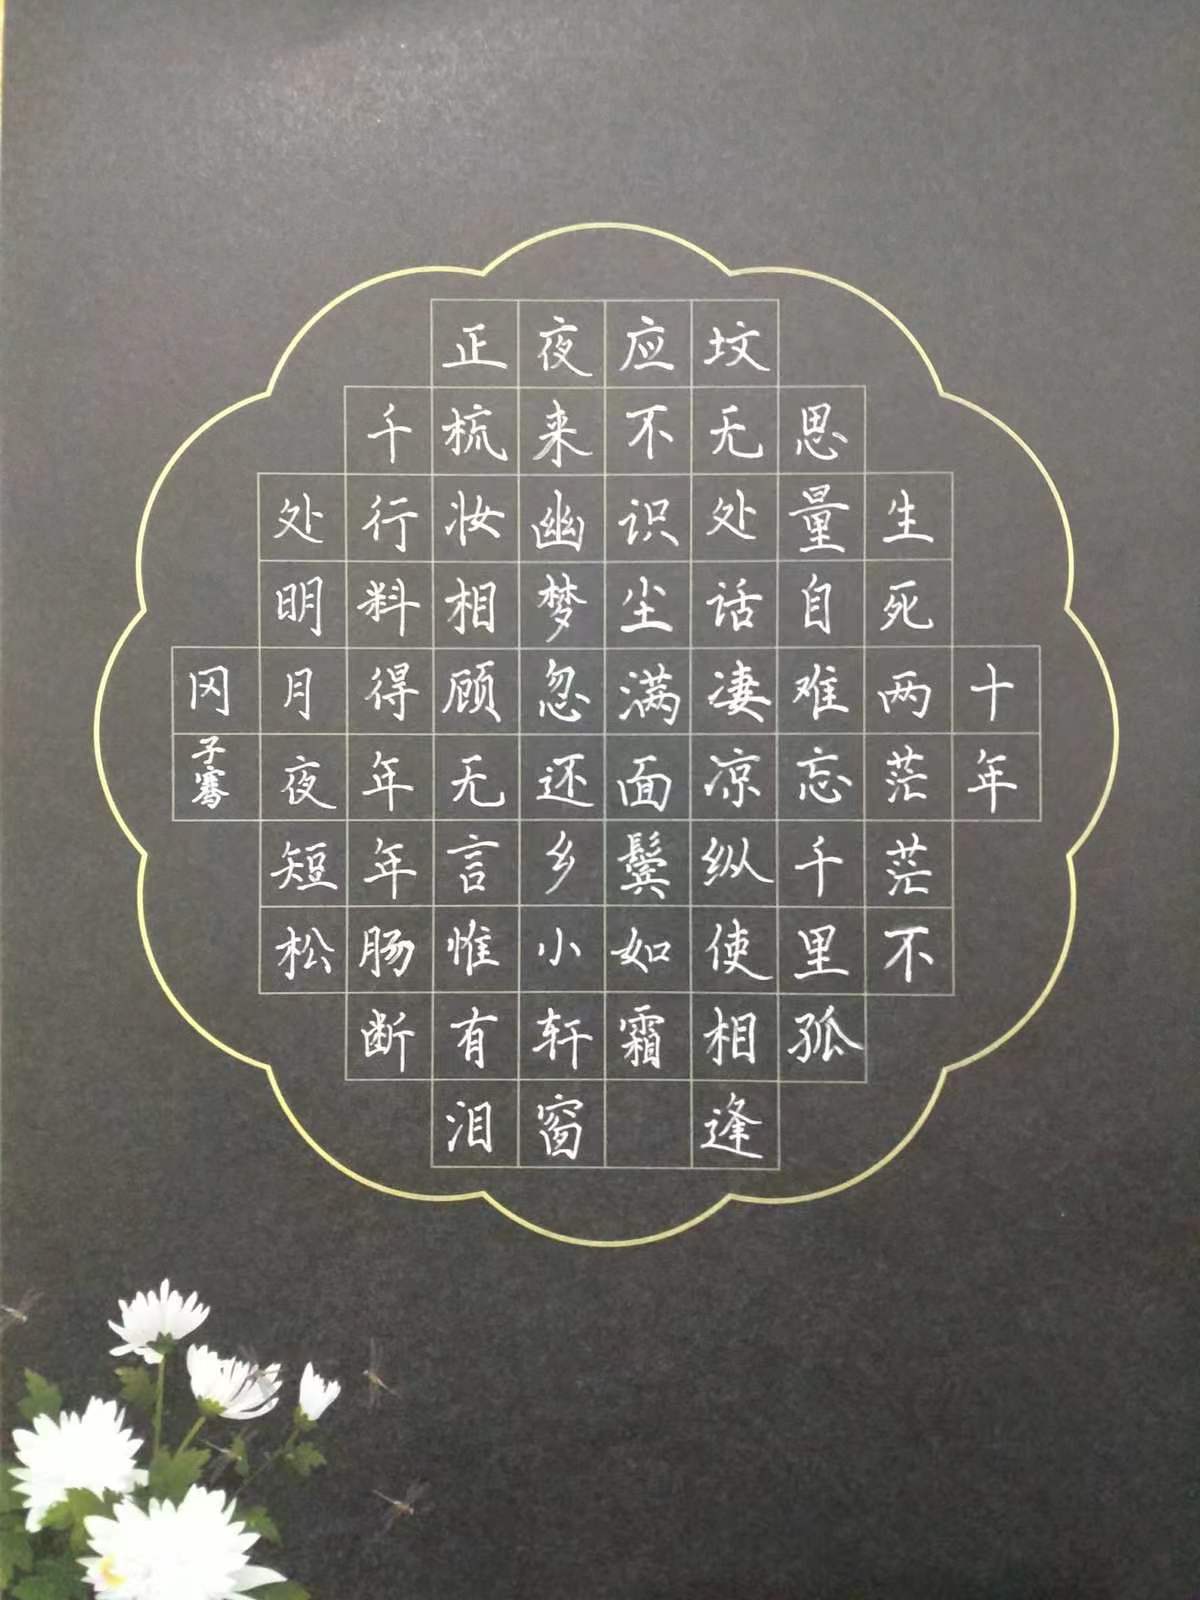 十年
生死两茫茫不
思量自难忘千里孤
坟无处话凄凉纵使相逢
应不识尘满面鬓如霜
夜来幽梦忽还乡小轩窗
正梳妆相顾无言惟有泪
千行料得年年肠断
处明月夜短松
冈
子骞